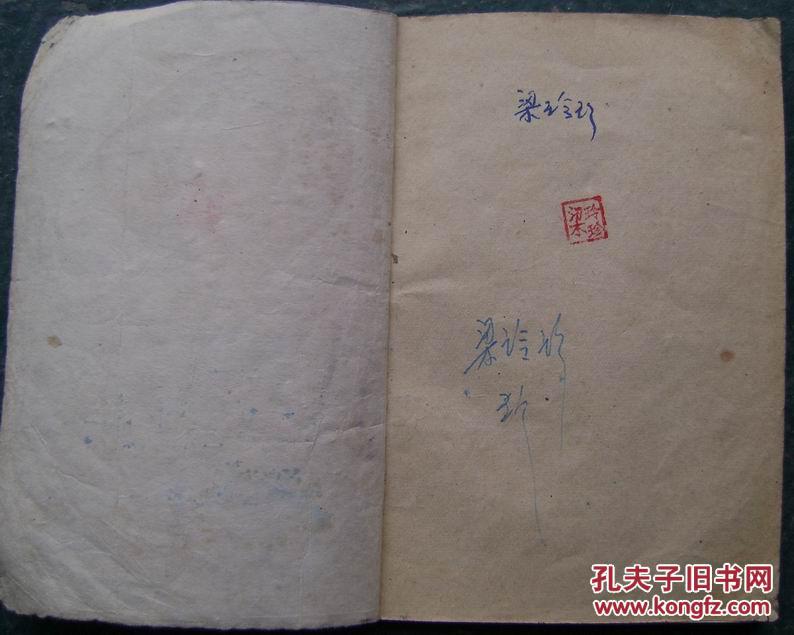 梁玲珍
梁玲珍
梁玲珍
珍
孔夫子旧书网
www.kongfz.com